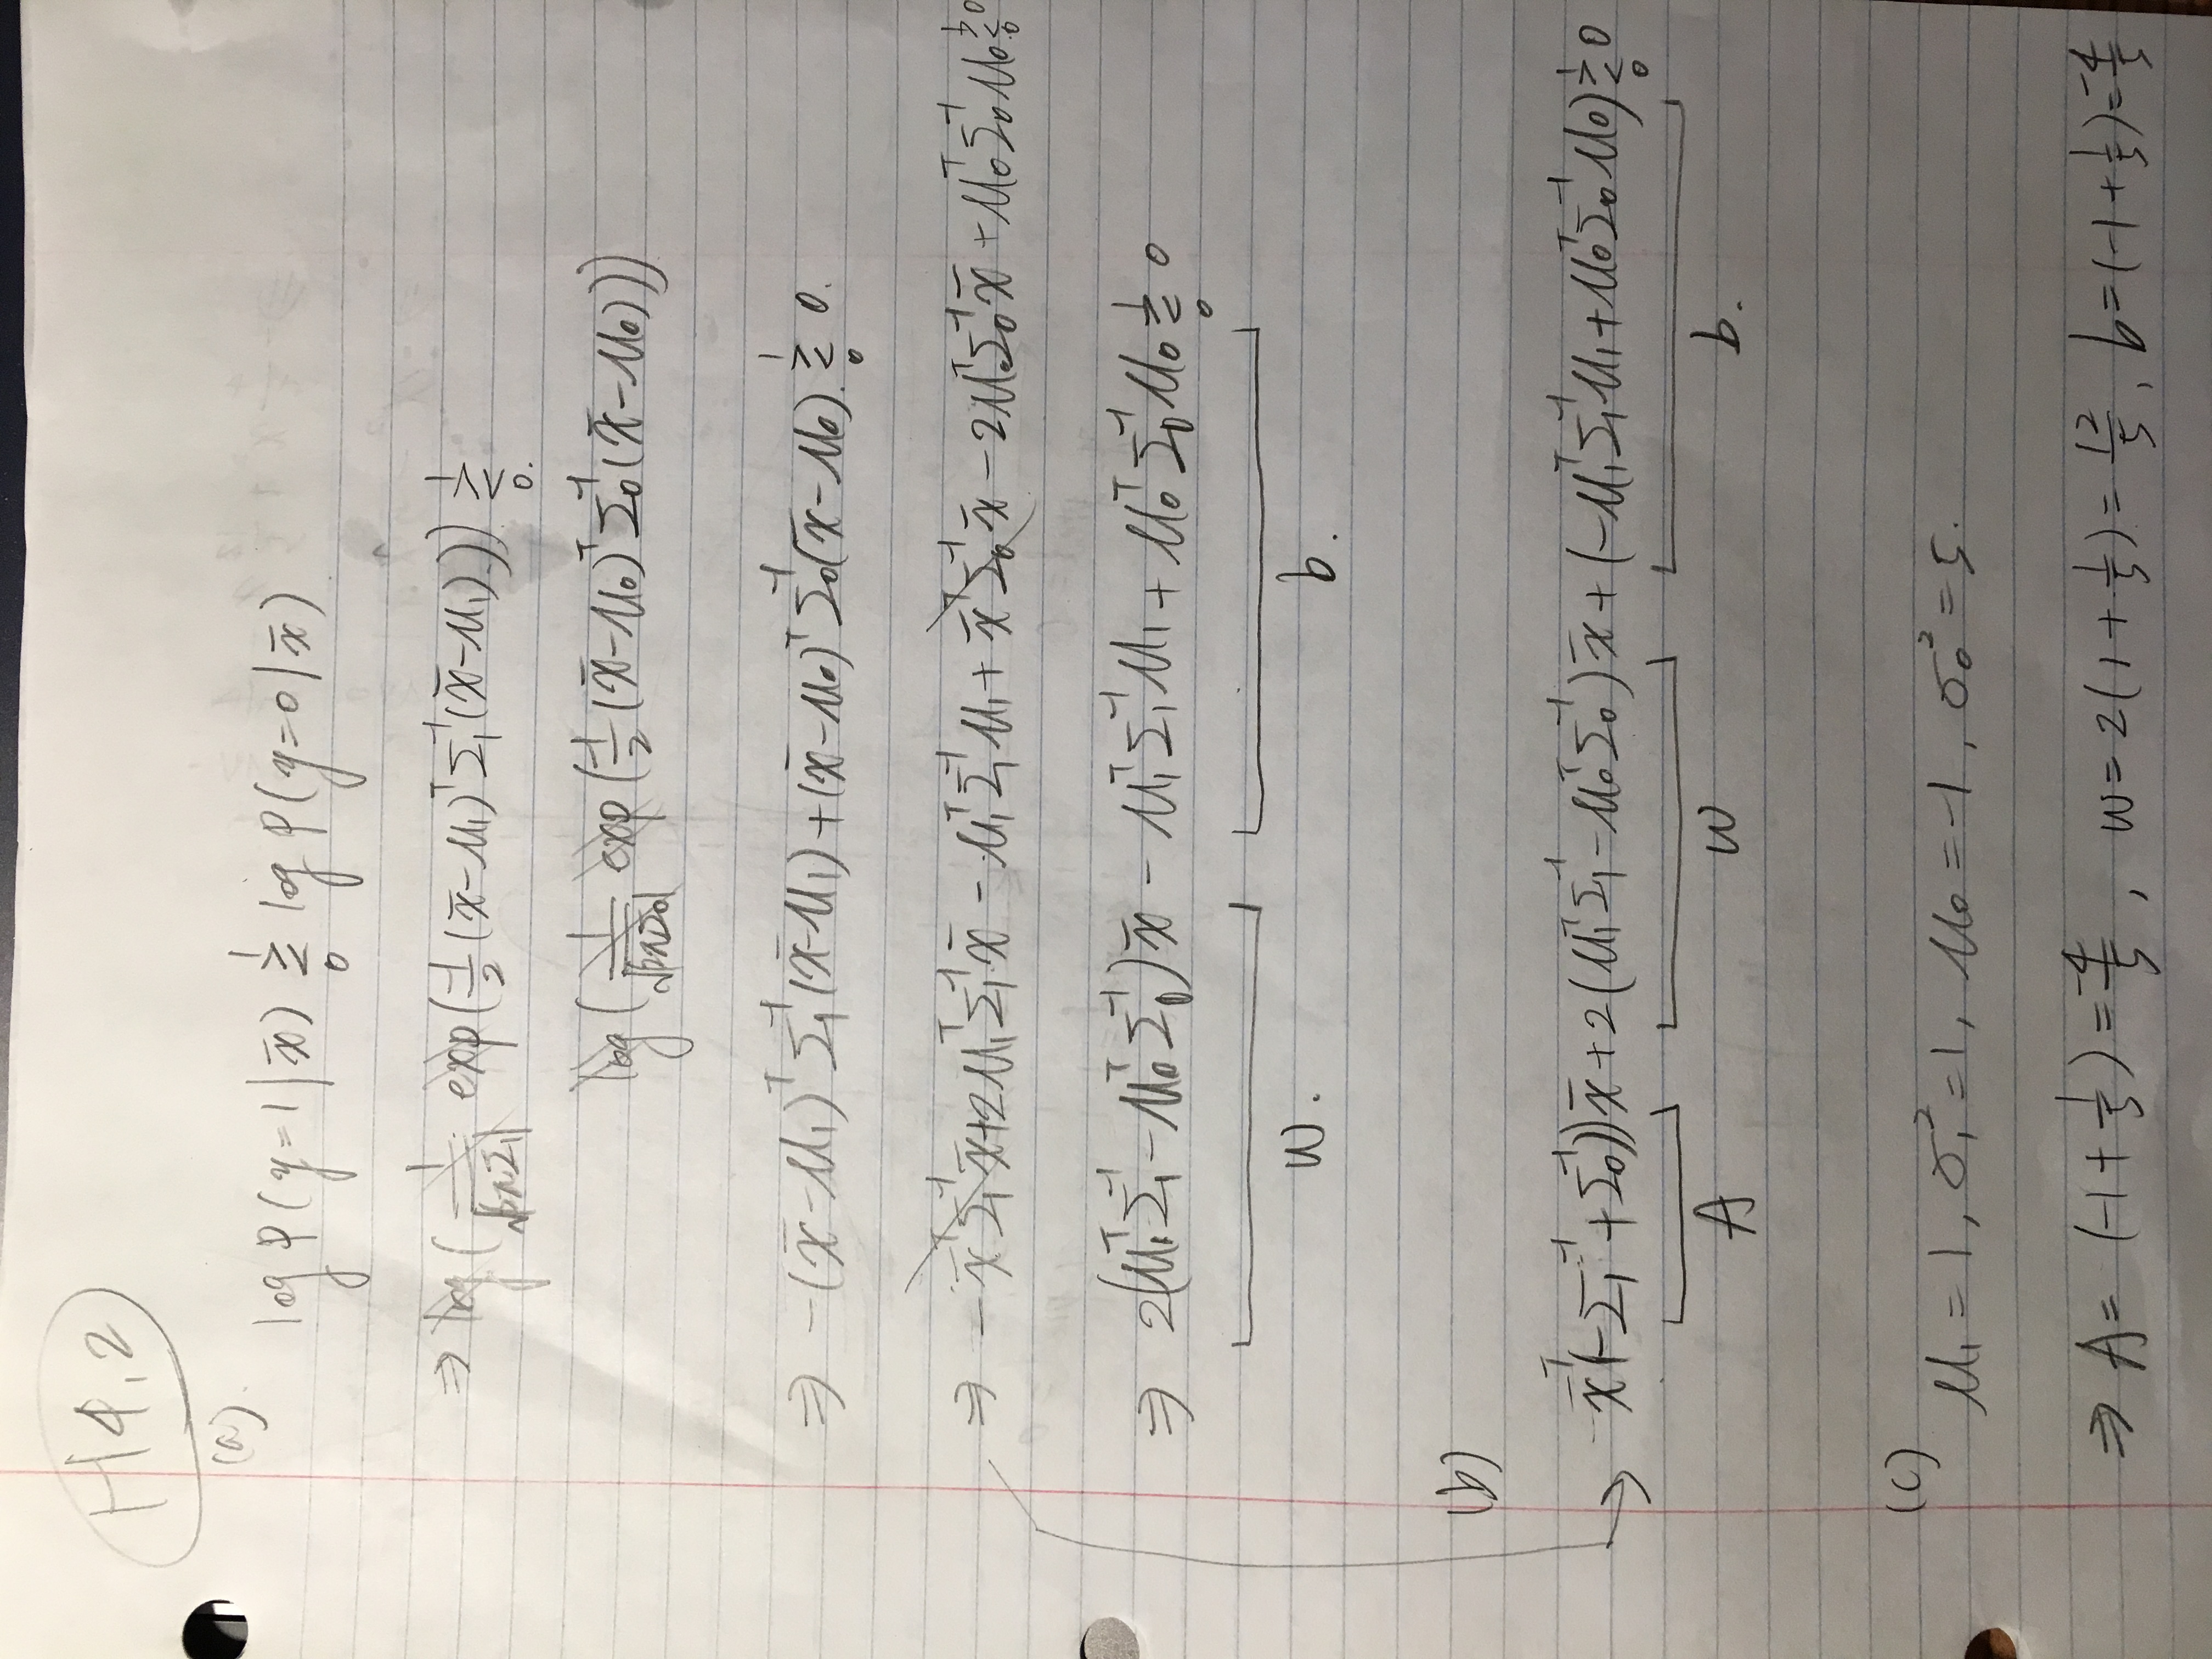 H4.2
(a).
log P(y=1|x̄) ≷¹₀ log P(y=0|x̄)
⇒ log(1/√|2πΣ₁| exp(-1/2 (x̄-μ₁)ᵀ Σ₁⁻¹ (x̄-μ₁))) ≷¹₀.
log(1/√|2πΣ₀| exp(-1/2 (x̄-μ₀)ᵀ Σ₀⁻¹ (x̄-μ₀)))
⇒ -(x̄-μ₁)ᵀ Σ₁⁻¹ (x̄-μ₁) + (x̄-μ₀)ᵀ Σ₀⁻¹ (x̄-μ₀). ≷¹₀ 0.
⇒ -x̄ᵀΣ₁⁻¹x̄ + 2μ₁ᵀΣ₁⁻¹x̄ - μ₁ᵀΣ₁⁻¹μ₁ + x̄ᵀΣ₀⁻¹x̄ - 2μ₀ᵀΣ₀⁻¹x̄ + μ₀ᵀΣ₀⁻¹μ₀ ≷¹₀ 0
⇒ 2(μ₁ᵀΣ₁⁻¹ - μ₀ᵀΣ₀⁻¹)x̄ - μ₁ᵀΣ₁⁻¹μ₁ + μ₀ᵀΣ₀⁻¹μ₀ ≷¹₀ 0
w. b.
(b)
→ x̄ᵀ(-Σ₁⁻¹ + Σ₀⁻¹))x̄ + 2(μ₁ᵀΣ₁⁻¹ - μ₀ᵀΣ₀⁻¹)x̄ + (-μ₁ᵀΣ₁⁻¹μ₁ + μ₀ᵀΣ₀⁻¹μ₀) ≷¹₀ 0
A w b.
(c)
μ₁ = 1, σ₁² = 1, μ₀ = -1, σ₀² = 5.
⇒ A = (-1 + 1/5) = -4/5, w = 2(1 + 1/5) = 12/5, b = (-1 + 1/5) = -4/5